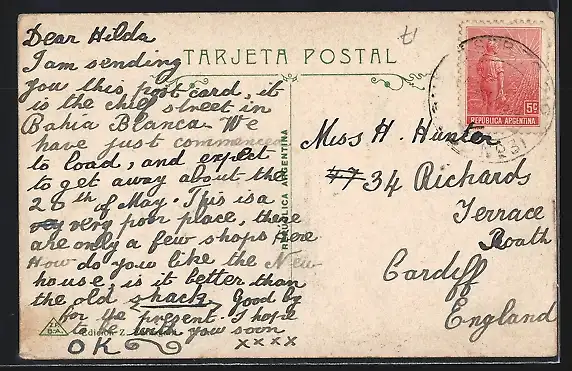 Dear Hilda
I am sending
you this post card, it
is the chief street in
Bahia Blanca. We
have just commenced
to load, and expect
to get away about the
28th of May. This is a
very poor place, there
are only a few shops here
How do you like the New
house, is it better than
the old shack. Good by
for ye present. I hope
to be with you soon
OK xxxx
TARJETA POSTAL
REPÚBLICA ARGENTINA
Edición Z.
5c
REPÚBLICA ARGENTINA
Miss H. Hunter
47 34 Richards
Terrace
Roath
Cardiff
England